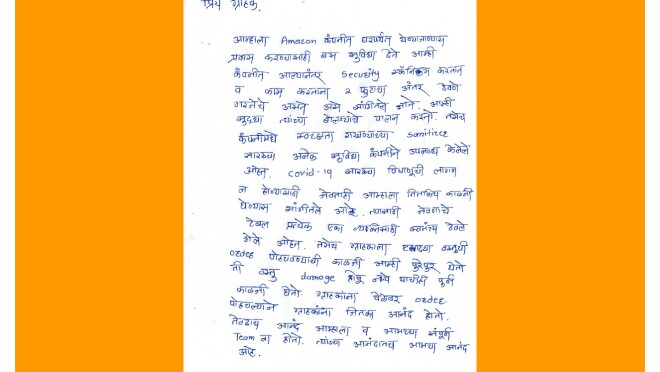 प्रिय ग्राहक,
आम्हाला Amazon कंपनीत
प्रवास करण्यासाठी बस सुविधा देते आम्ही
कंपनीत आल्यानंतर Security स्कॅनिंग करतात
व काम करताना २ फुटाचा अंतर ठेवणे
गरजेचे असते असे सांगितले जाते. आम्ही
सुद्धा त्यांच्या बोलण्याचे पालन करतो. तसेच
कंपनीमध्ये स्वच्छता राखण्याच्या sanitizer
सारख्या अनेक सुविधा कंपनीने उपलब्ध केलेले
आहेत. covid-19 सारख्या विषाणूची लागण
न होण्यासाठी जेवताही आम्हाला तितकीच काळजी
घेण्यास सांगितले आहे. त्यासाठी जेवणाचे
टेबल प्रत्येक एका व्यक्तिसाठी स्वतंत्र ठेवले
गेले आहेत. तसेच ग्राहकांना एखाद्या वस्तूची
order पोहचवण्याची काळजी आम्ही पुरेपूर घेतो
ती वस्तू damage होवू नये याचीही पूर्ण
काळजी घेतो. ग्राहकांना वेळेवर order
पोहचल्याने ग्राहकांना जितका आनंद होतो.
तेवढाच आनंद आम्हाला व आमच्या संपूर्ण
Team ला होतो. त्यांच्या आनंदातच आमचा आनंद
आहे.